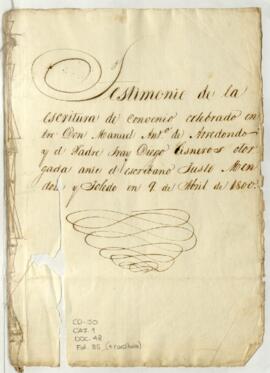 Testimonio de la
escritura de convenio celebrado en
tre Don Manuel Ant.º de Arredondo
y el Padre Fray Diego Cisneros otor
gada ante el escribano Justo Men
doza y Toledo en 9 de Abril de 1800.
CD-30
CAJ. 1
DOC. 48
Fol. 35 (+ carátula)